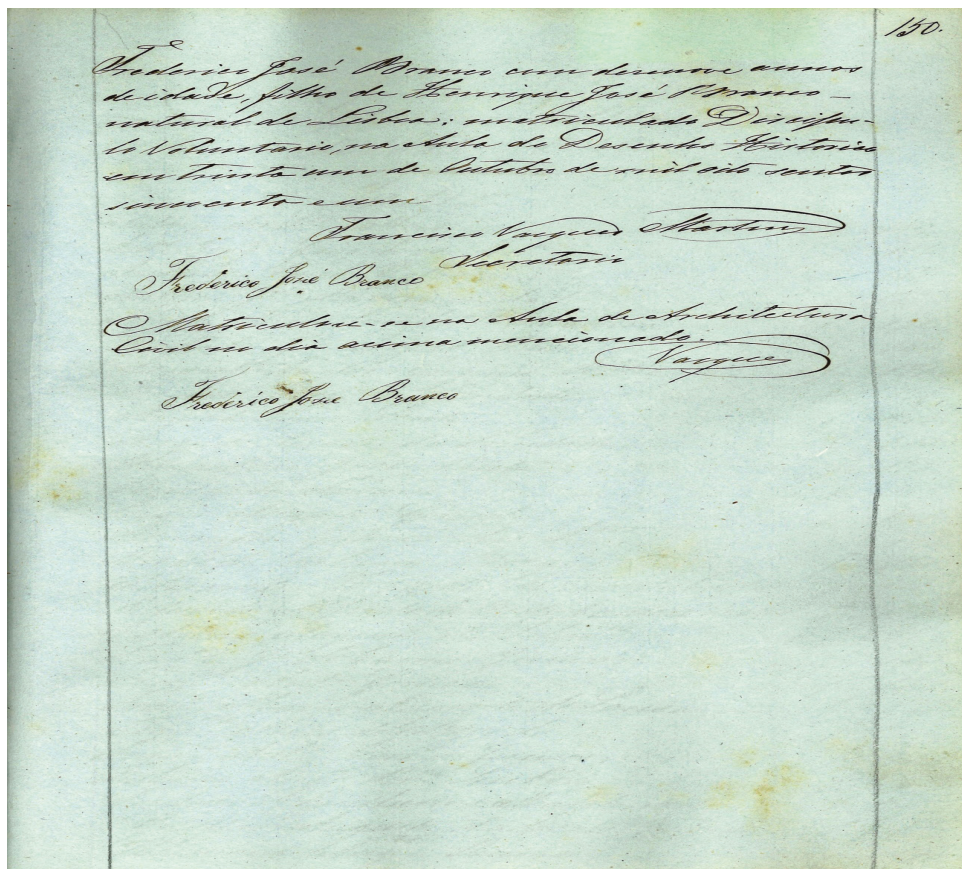 150.
Frederico José Branco com desanove annos
de idade, filho de Henrique José Branco
natural de Lisboa: matriculado Discipu-
lo Voluntario, na Aula de Desenho Historico
em trinta um de Outubro de mil oito sentos
sincoenta e um
Francisco Vasques Martins
Secretario
Frederico José Branco
Matriculou-se na Aula de Architectura
Civil no dia acima mencionado.
Vasques
Frederico José Branco